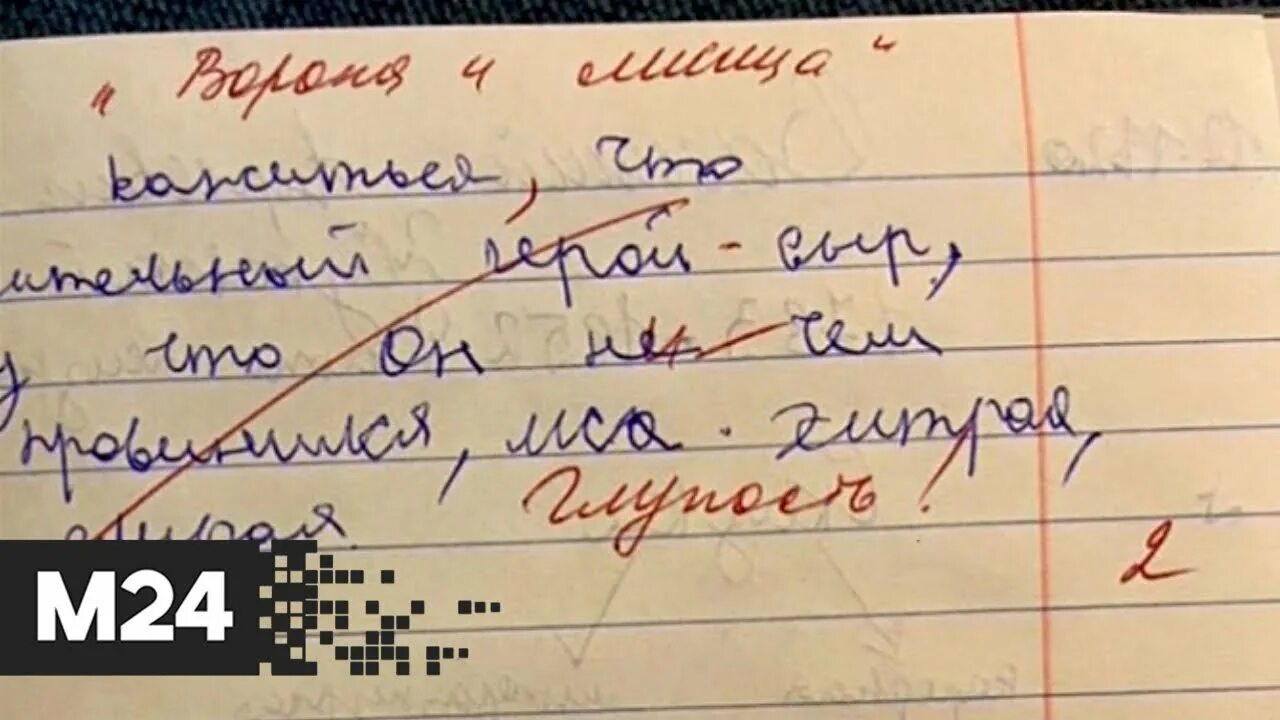 "Ворона и лисица"
кажиться, что
ительный герой - сыр,
у что он не чем
провинился, лиса. хитрая,
Глупость!
2
М24